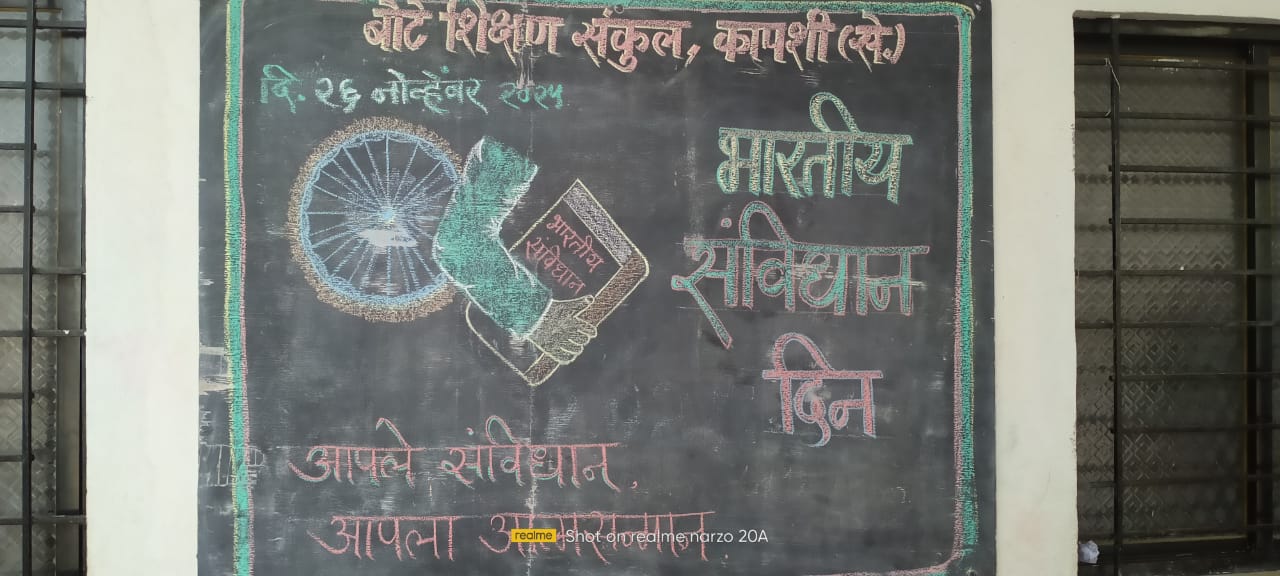 बोटे शिक्षण संकुल, कापशी (खे.)
दि. २६ नोव्हेंबर २०२५
भारतीय
संविधान
दिन
भारतीय
संविधान
आपले संविधान,
आपला आत्मसन्मान.
realme Shot on realme narzo 20A